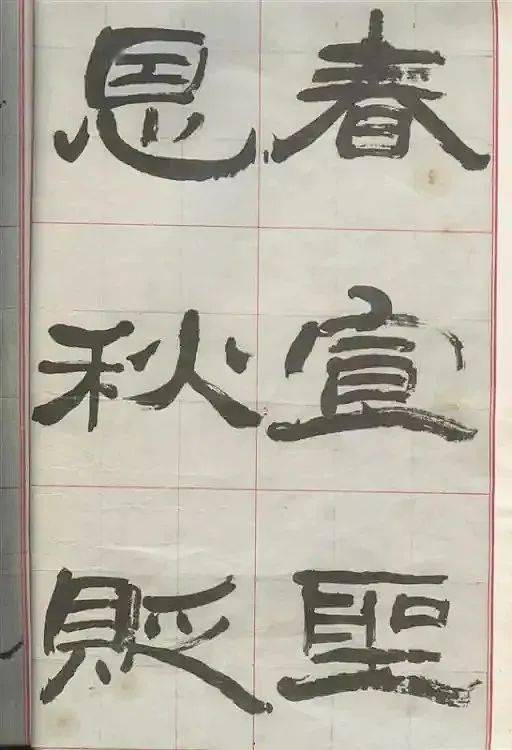 春宣聖
恩秋貶